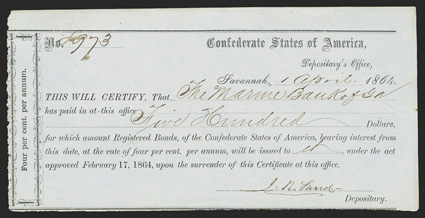 No. 973
Confederate States of America,
Depositary's Office,
Savannah, 1 April 1864.
THIS WILL CERTIFY, That The Marine Bank of Ga
has paid in at this office Five Hundred
Dollars,
for which amount Registered Bonds, of the Confederate States of America, bearing interest from
this date, at the rate of four per cent. per annum, will be issued to it, under the act
approved February 17, 1864, upon the surrender of this Certificate at this office.
Depositary.
Four per cent. per annum.